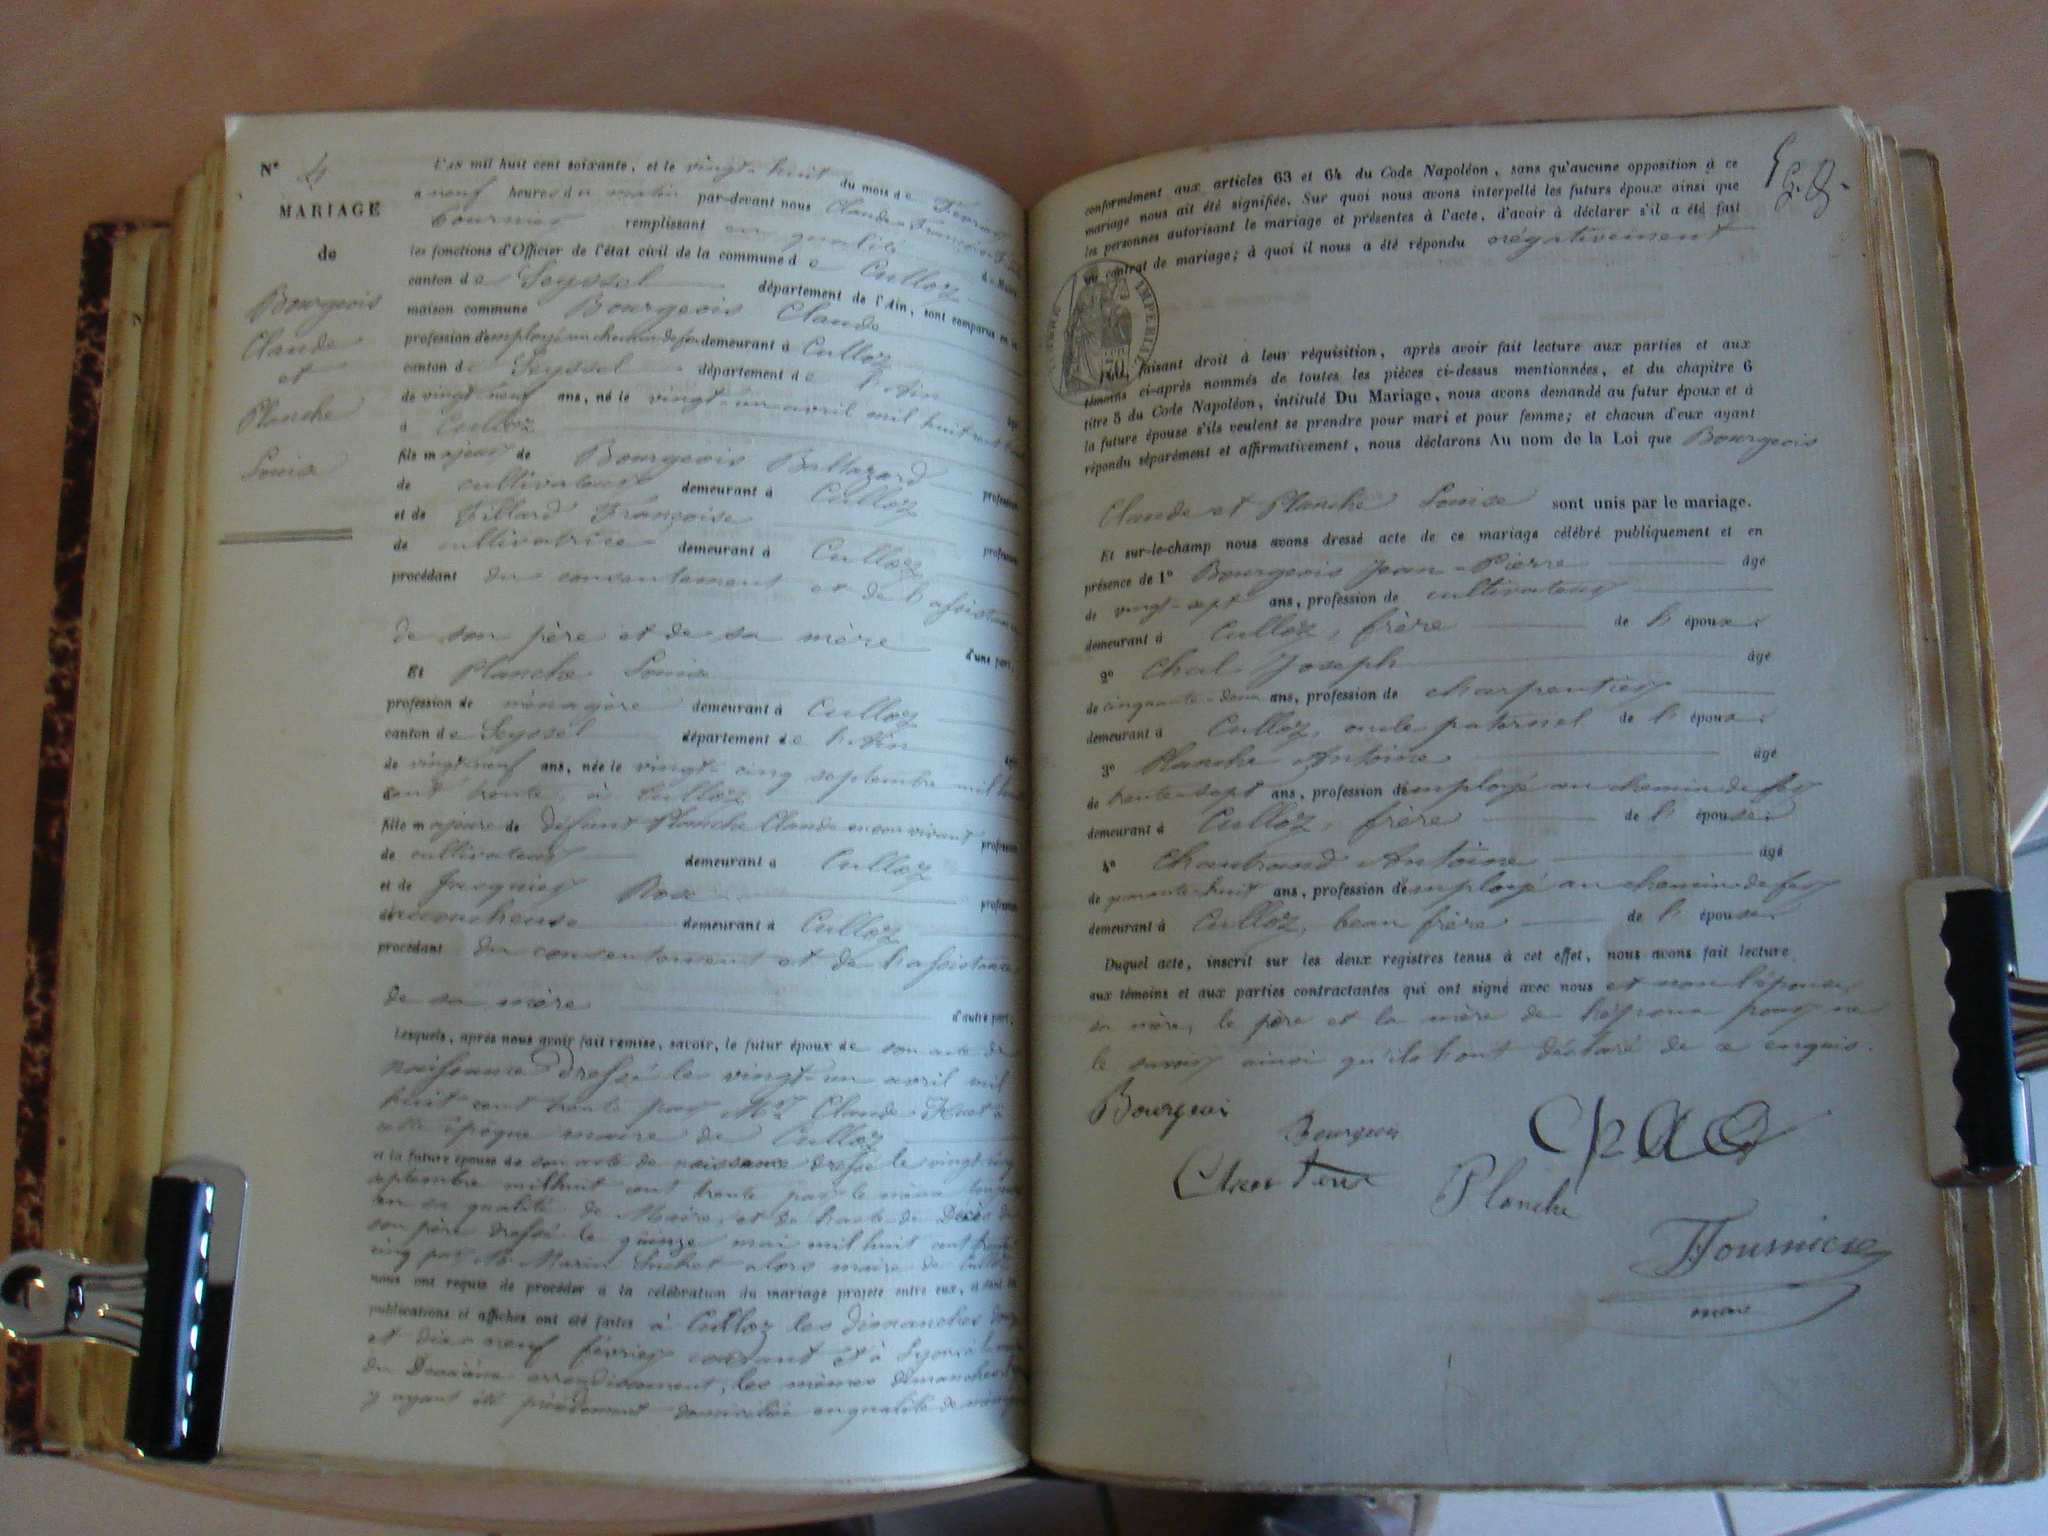 N° 4
MARIAGE
de
Bourgeois
Claude
et
Planche
Louise
L'AN mil huit cent soixante, et le vingt-huit du mois de Février
a neuf heures du matin par-devant nous Claude François
Fournier remplissant en qualité de Maire
les fonctions d'Officier de l'état civil de la commune de Culloz
canton de Seyssel département de l'Ain, sont comparus en la
maison commune Bourgeois Claude
profession d'employé au chemin de fer demeurant à Culloz
canton de Seyssel département de l'Ain
de vingt-neuf ans, né le vingt-un avril mil huit cent
à Culloz
fils majeur de Bourgeois Baltazard profession
de cultivateur demeurant à Culloz
et de Billard Françoise profession
de cultivatrice demeurant à Culloz
procédant du consentement et de l'assistance
de son père et de sa mère d'une part,
Et Planche Louise
profession de ménagère demeurant à Culloz
canton de Seyssel département de l'Ain
de vingt-neuf ans, née le vingt-cinq septembre mil huit
cent trente, à Culloz
fille majeure de défunt Planche Claude en son vivant profession
de cultivateur demeurant à Culloz
et de Jacquier Rose profession
d'accoucheuse demeurant à Culloz
procédant du consentement et de l'assistance
de sa mère d'autre part,
Lesquels, après nous avoir fait remise, savoir, le futur époux de son acte de
naissance dressé le vingt-un avril mil
huit cent trente par Mr Claude
cette époque maire de Culloz
et la future épouse de son acte de naissance dressé le vingt-cinq
septembre mil huit cent trente par le même toujours
en sa qualité de Maire, et de l'acte de Décès de
son père dressé le quinze mai mil huit cent trente
cinq par Mr Marin Suchet alors maire de Culloz
nous ont requis de procéder à la célébration du mariage projeté entre eux, a dont les
publications et affiches ont été faites à Culloz les dimanches douze
et dix neuf février courant et à Lyon
du Deuxième arrondissement, les mêmes dimanches
y ayant été précédemment domiciliée en qualité de
conformément aux articles 63 et 64 du Code Napoléon, sans qu'aucune opposition à ce
mariage nous ait été signifiée. Sur quoi nous avons interpellé les futurs époux ainsi que
les personnes autorisant le mariage et présentes à l'acte, d'avoir à déclarer s'il a été fait
un contrat de mariage; à quoi il nous a été répondu négativement
TIMBRE IMPERIAL
faisant droit à leur réquisition, après avoir fait lecture aux parties et aux
témoins ci-après nommés de toutes les pièces ci-dessus mentionnées, et du chapitre 6
titre 5 du Code Napoléon, intitulé Du Mariage, nous avons demandé au futur époux et à
la future épouse s'ils veulent se prendre pour mari et pour femme; et chacun d'eux ayant
répondu séparément et affirmativement, nous déclarons Au nom de la Loi que Bourgeois
Claude et Planche Louise sont unis par le mariage.
Et sur-le-champ nous avons dressé acte de ce mariage célébré publiquement et en
présence de 1° Bourgeois Jean-Pierre âgé
de vingt-sept ans, profession de cultivateur
demeurant à Culloz, frère de l'époux;
2° Chal Joseph âgé
de cinquante-deux ans, profession de charpentier
demeurant à Culloz, oncle paternel de l'époux;
3° Planche Antoine âgé
de trente-sept ans, profession d'employé au chemin de fer
demeurant à Culloz, frère de l'épouse;
4° Chautrand Antoine âgé
de quarante-huit ans, profession d'employé au chemin de fer
demeurant à Culloz, beau frère de l'épouse.
Duquel acte, inscrit sur les deux registres tenus à cet effet, nous avons fait lecture
aux témoins et aux parties contractantes qui ont signé avec nous et non l'épouse,
sa mère, le père et la mère de l'époux pour ne
le savoir ainsi qu'ils l'ont déclaré de ce enquis.
Bourgeois
Bourgeois
Planche
Fournier
maire